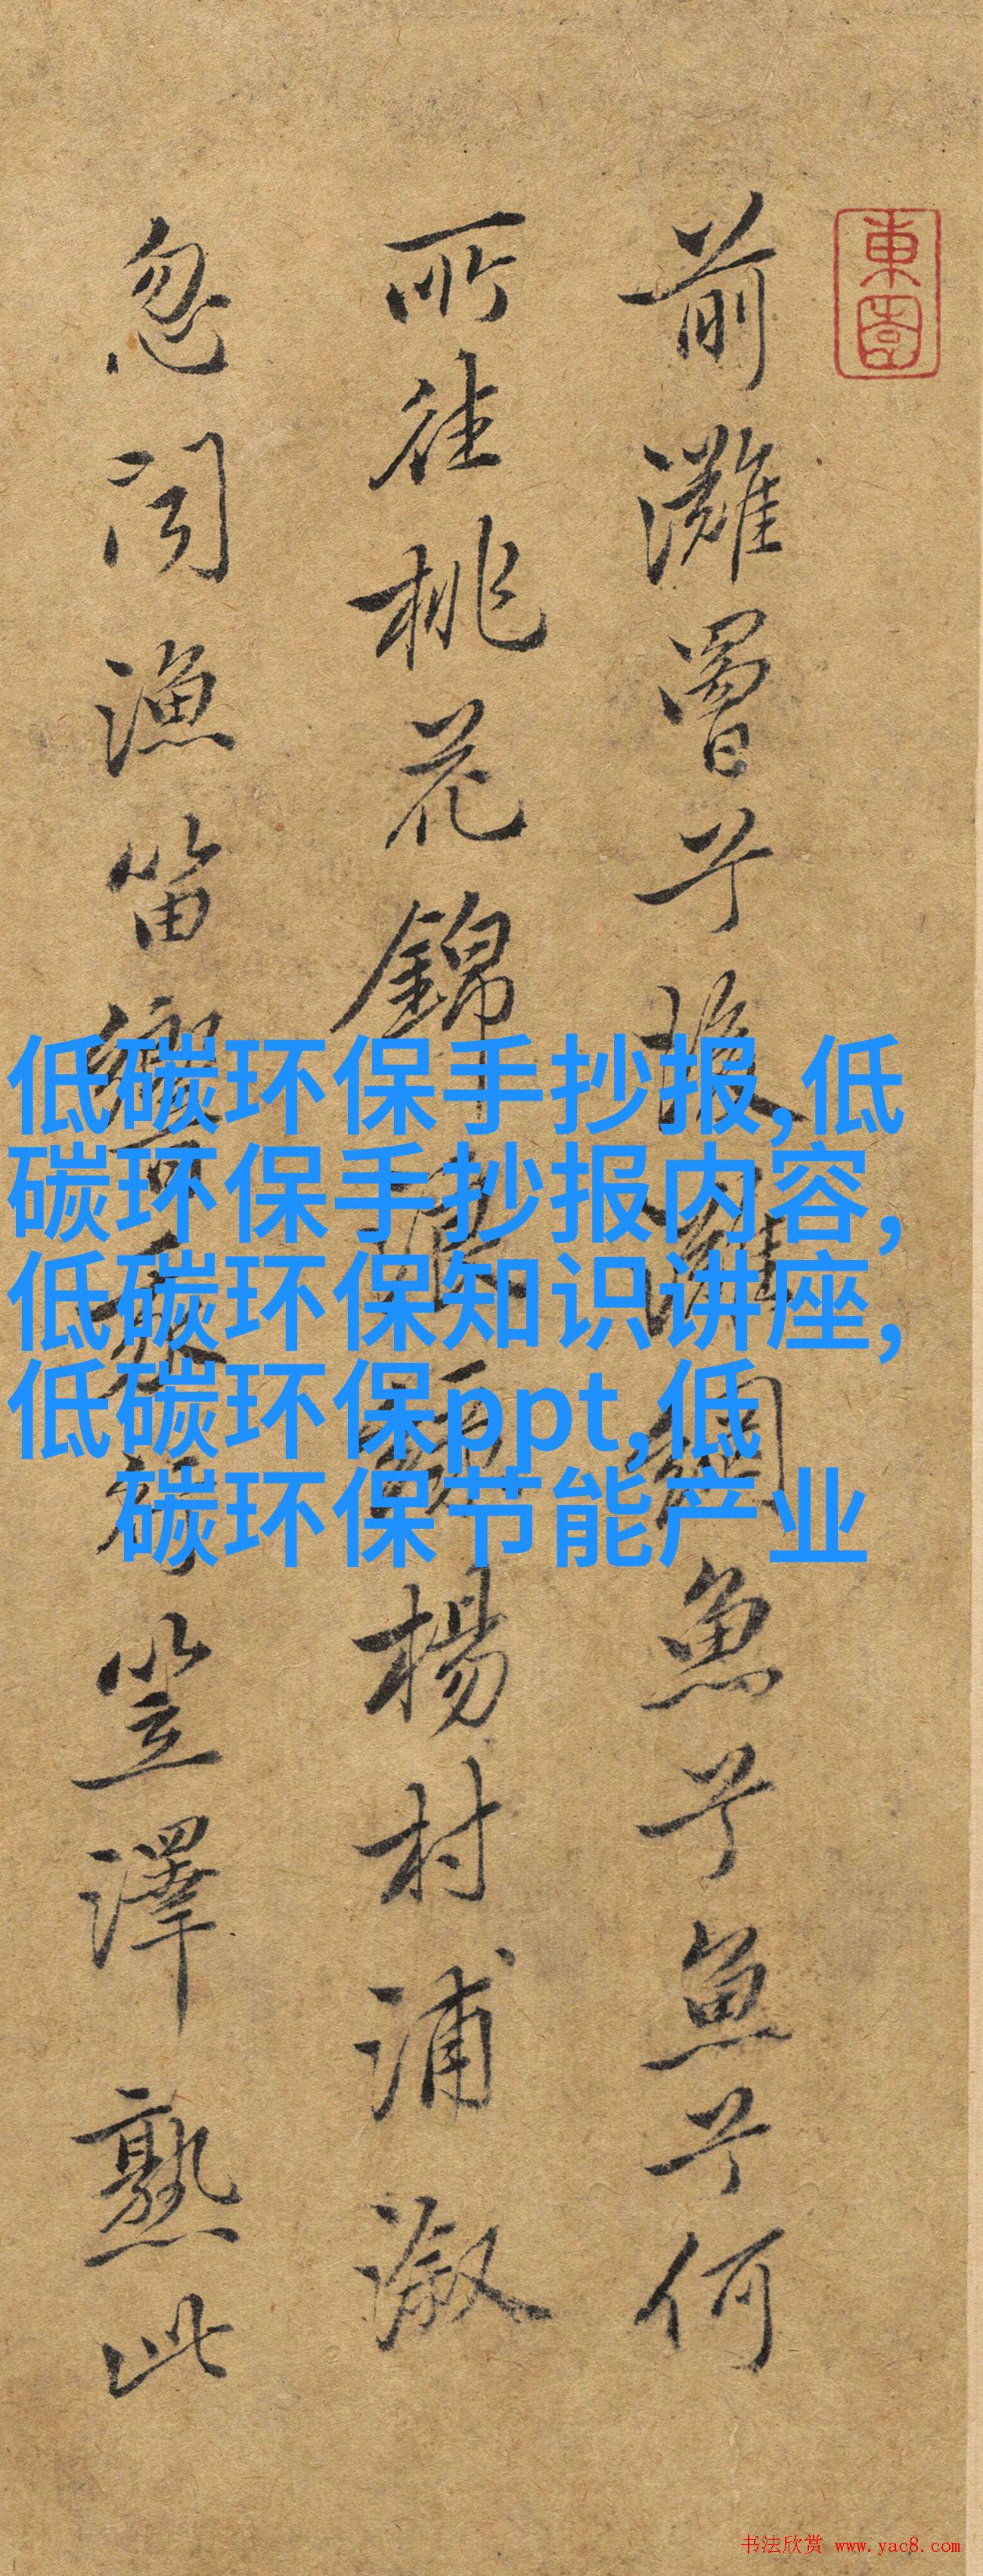 東園
前灘罾兮後灘網魚兮魚兮何
所往桃花錦浪綠楊村浦漵
忽聞漁笛響笠澤熟此
低碳环保手抄报,低
碳环保手抄报内容,
低碳环保知识讲座,
低碳环保ppt,低
碳环保节能产业
书法欣赏 www.yac8.com